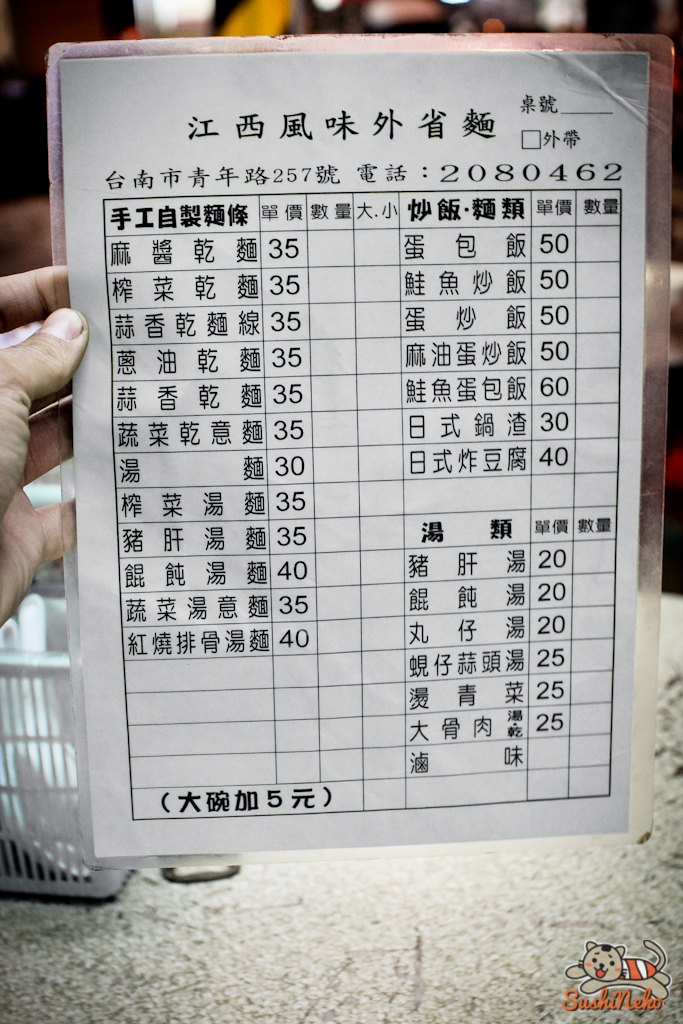 江西風味外省麵
桌號____
□外帶
台南市青年路257號 電話：2080462
手工自製麵條 單價 數量 大.小
麻醬乾麵 35
榨菜乾麵 35
蒜香乾麵線 35
蔥油乾麵 35
蒜香乾麵 35
蔬菜乾意麵 35
湯麵 30
榨菜湯麵 35
豬肝湯麵 35
餛飩湯麵 40
蔬菜湯意麵 35
紅燒排骨湯麵 40
（大碗加5元）
炒飯·麵類 單價 數量
蛋包飯 50
鮭魚炒飯 50
蛋炒飯 50
麻油蛋炒飯 50
鮭魚蛋包飯 60
日式鍋渣 30
日式炸豆腐 40
湯類 單價 數量
豬肝湯 20
餛飩湯 20
丸仔湯 20
蜆仔蒜頭湯 25
燙青菜 25
大骨肉 湯·乾 25
滷味
SushiNeko